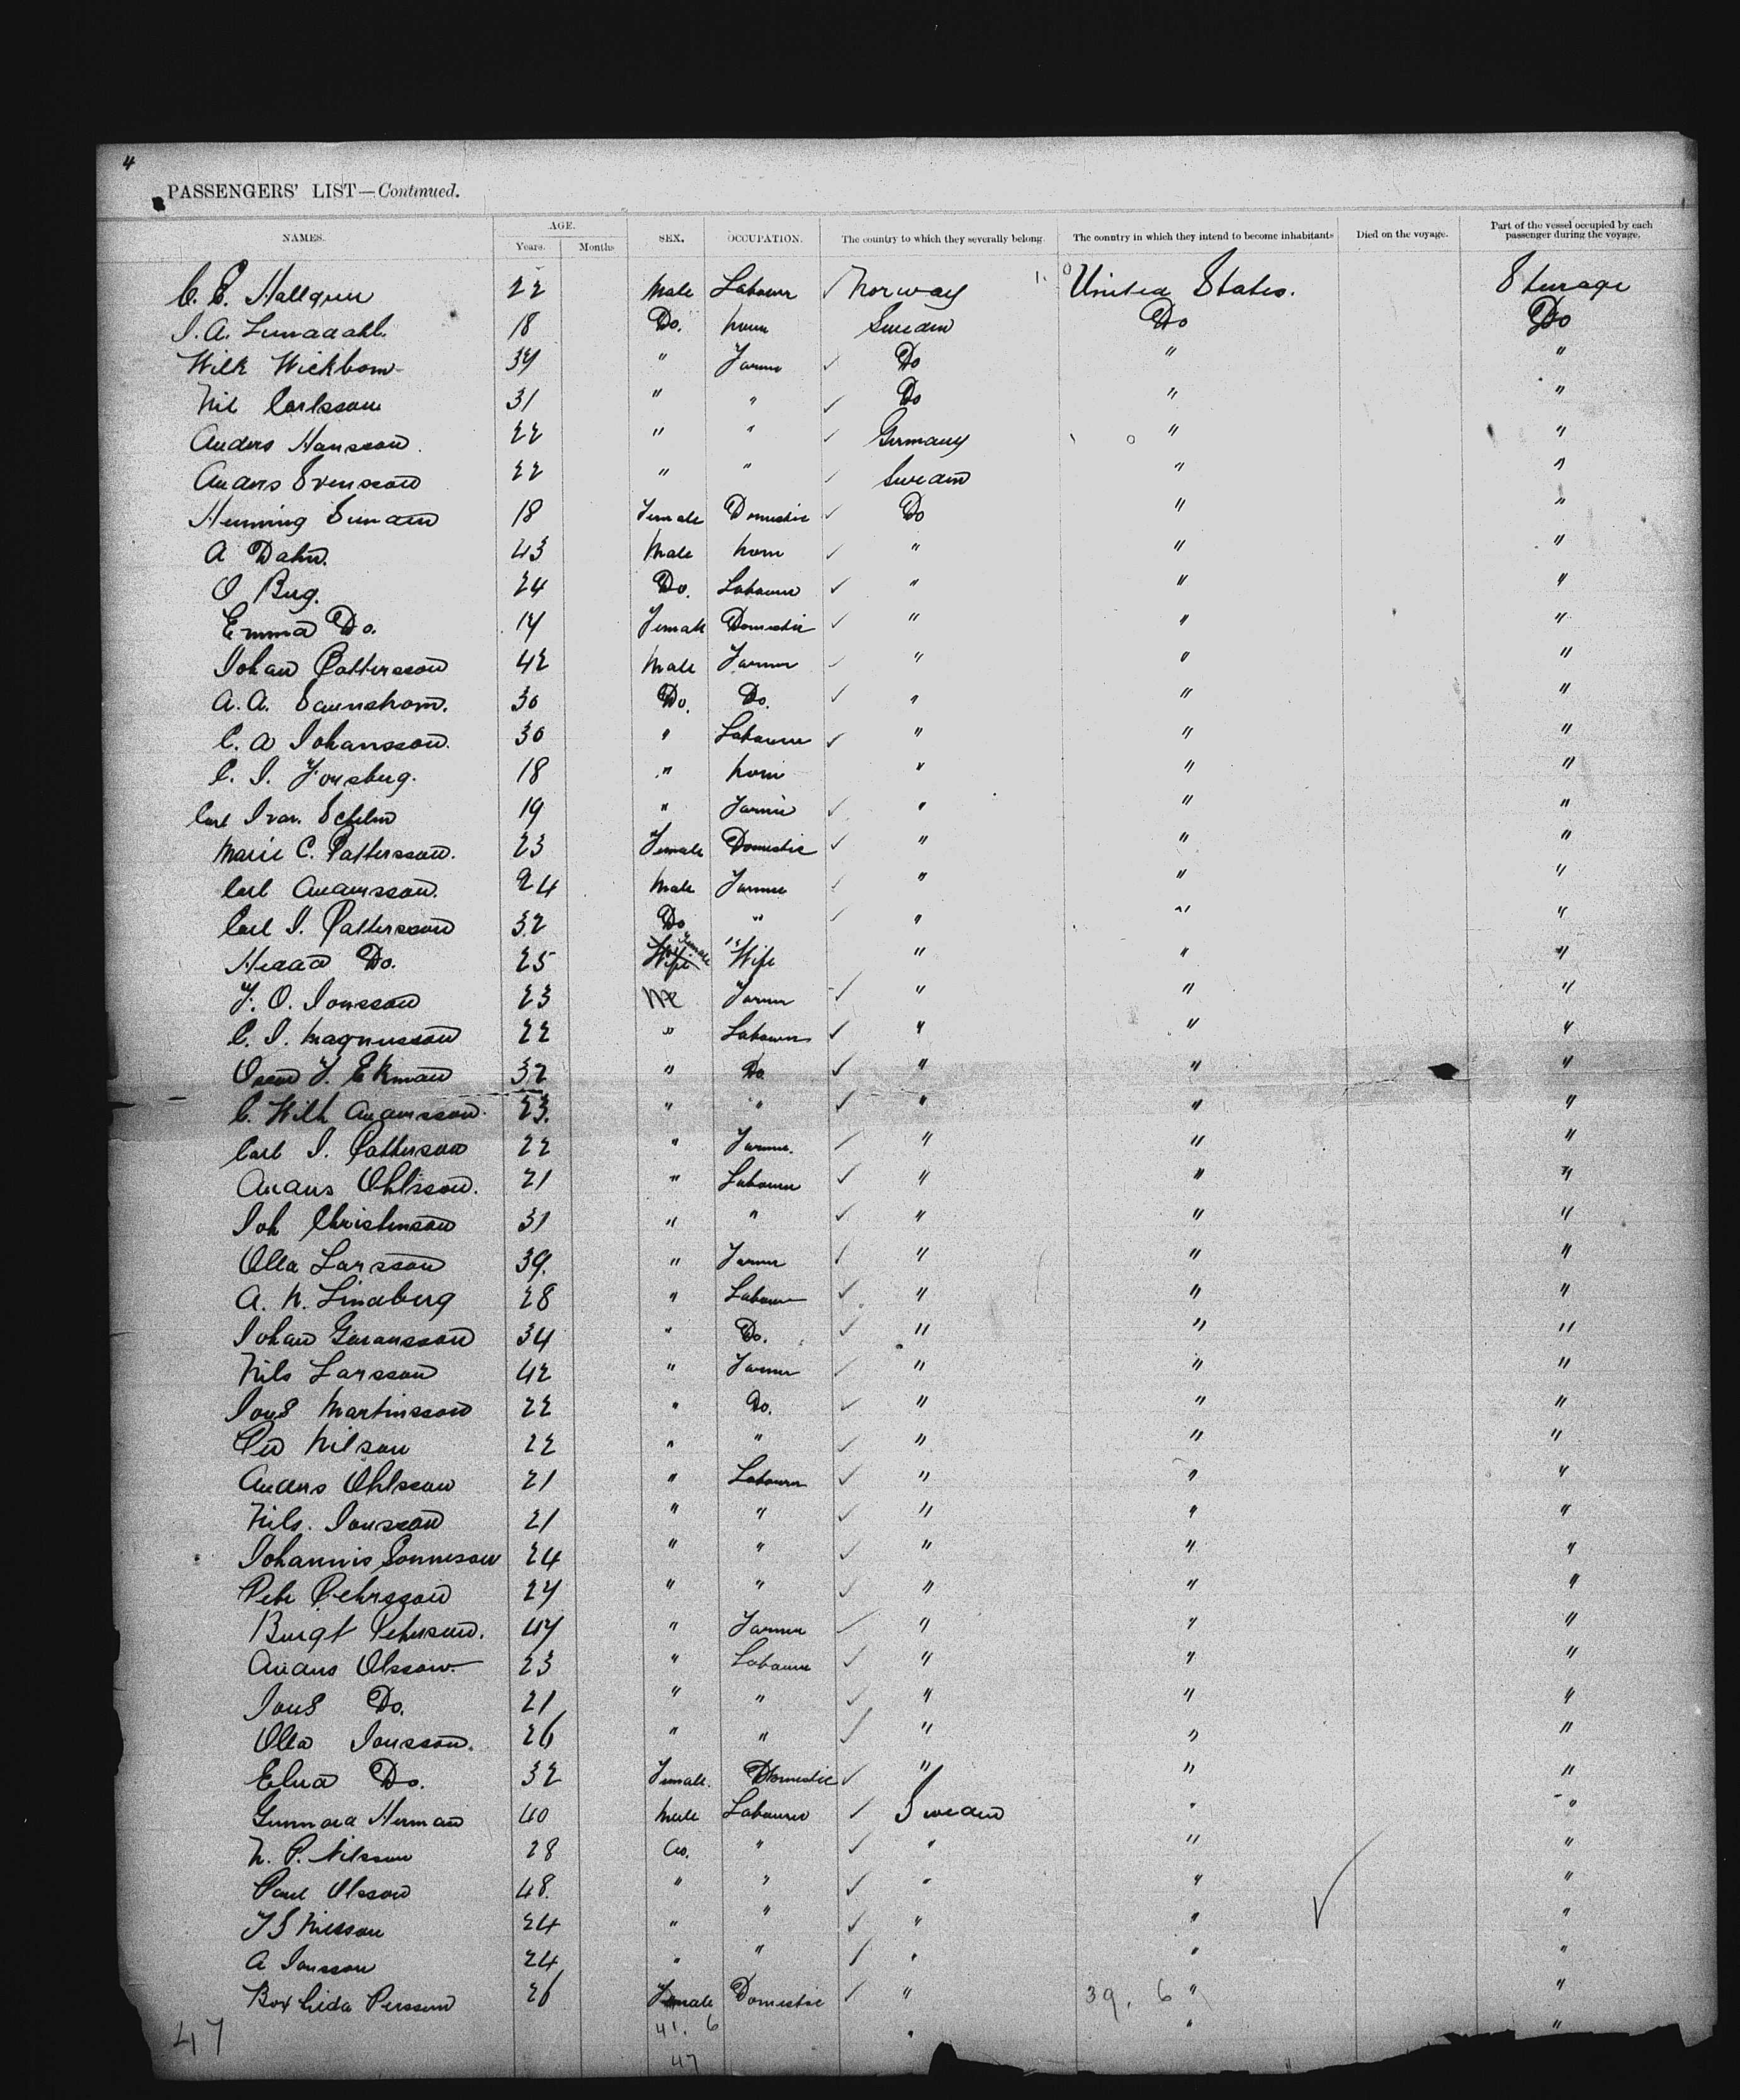 4
PASSENGERS' LIST—Continued.
NAMES. AGE. Years. Months SEX. OCCUPATION. The country to which they severally belong. The country in which they intend to become inhabitants Died on the voyage. Part of the vessel occupied by each passenger during the voyage.
22 Male Labourer ✓ Norway 1. 0 United States. Sterage
18 Do. Sweden Do Do
Wilk Wickbom 34 " Farmer ✓ Do " "
Nil Carlsson 31 " " ✓ Do " "
Anders Hansson 22 " " ✓ Germany 0 " "
Anders Svensson 22 " " ✓ Sweden " "
Henning 18 Female Domestic ✓ Do " "
A Dahn. 43 Male ✓ " " "
O Berg. 24 Do. Labourer ✓ " " "
Emma Do. Female Domestic ✓ " " "
Johan Pattersson 42 Male Farmer ✓ " " "
A. A. 30 Do. Do. ✓ " " "
C. A Johansson. 30 " Labourer ✓ " " "
C. J. 18 " " " "
Carl Ivar. 19 " Farmer ✓ " " "
Marie C. Pattersson. 23 Female Domestic ✓ " " "
Carl Andersson. 24 Male Farmer ✓ " " "
Carl J. Pattersson 32 Do " ✓ " " "
Do. 25 Female Wife " " "
F. O. Jonsson 23 Me Farmer ✓ " " "
C. J. Magnusson 22 " Labourer ✓ " " "
Oscar F. Ekman 32 " Do ✓ " " "
C. Wilh Andersson. 23. " " ✓ " " "
Carl J. Patterson 22 " Farmer. ✓ " " "
Anders Ohlsson. 21 " Labourer ✓ " " "
Joh Christenson 31 " " ✓ " " "
Olla Larsson 39. " Farmer ✓ " " "
A. N. Lindberg 28 " Labourer ✓ " " "
Johan Goransson 34 " Do. ✓ " " "
Nils Larsson 42 " Farmer ✓ " " "
Jons Martinsson 22 " Do. ✓ " " "
Per Nilson 22 " " ✓ " " "
Anders Ohlsson 21 " Labourer ✓ " " "
Nils. Jonsson 21 " " ✓ " " "
Johannis Sonneson 24 " " ✓ " " "
Pehr Pehrsson 24 " " ✓ " " "
Bengt Pehrsson. 44 " Farmer ✓ " " "
Anders Olsson 23 " Labourer ✓ " " "
Jons Do. 21 " " ✓ " " "
Olla Jonsson. 26 " " ✓ " " "
Elna Do. 32 Female. Domestic ✓ " " "
Herman 40 Male Labourer ✓ Sweden " "
N. P. Nilsson 28 Do. " ✓ " " "
Paul Olsson 48. " " ✓ " " "
Nilsson 24 " " ✓ " " "
A Jonsson 24 " " ✓ " " "
Persson 26 Female Domestic ✓ " 39. 6 " "
47 41. 6 " " "
47